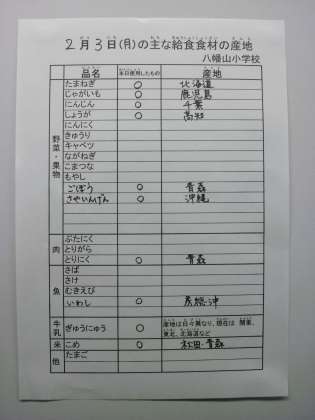 2月3日(月)の主な給食食材の産地
八幡山小学校
品名 本日使用したもの 産地
野菜・果物
たまねぎ ○ 北海道
じゃがいも ○ 鹿児島
にんじん ○ 千葉
しょうが ○ 高知
にんにく
きゅうり
キャベツ
ながねぎ
こまつな
もやし
ごぼう ○ 青森
さやいんげん ○ 沖縄
肉
ぶたにく
とりがら
とりにく ○ 青森
魚
さば
さけ
むきえび
いわし ○ 房総沖
牛乳 ぎゅうにゅう ○ 産地は日々異なり、現在は 関東、
東北、北海道など
米 こめ ○ 秋田・青森
他 たまご